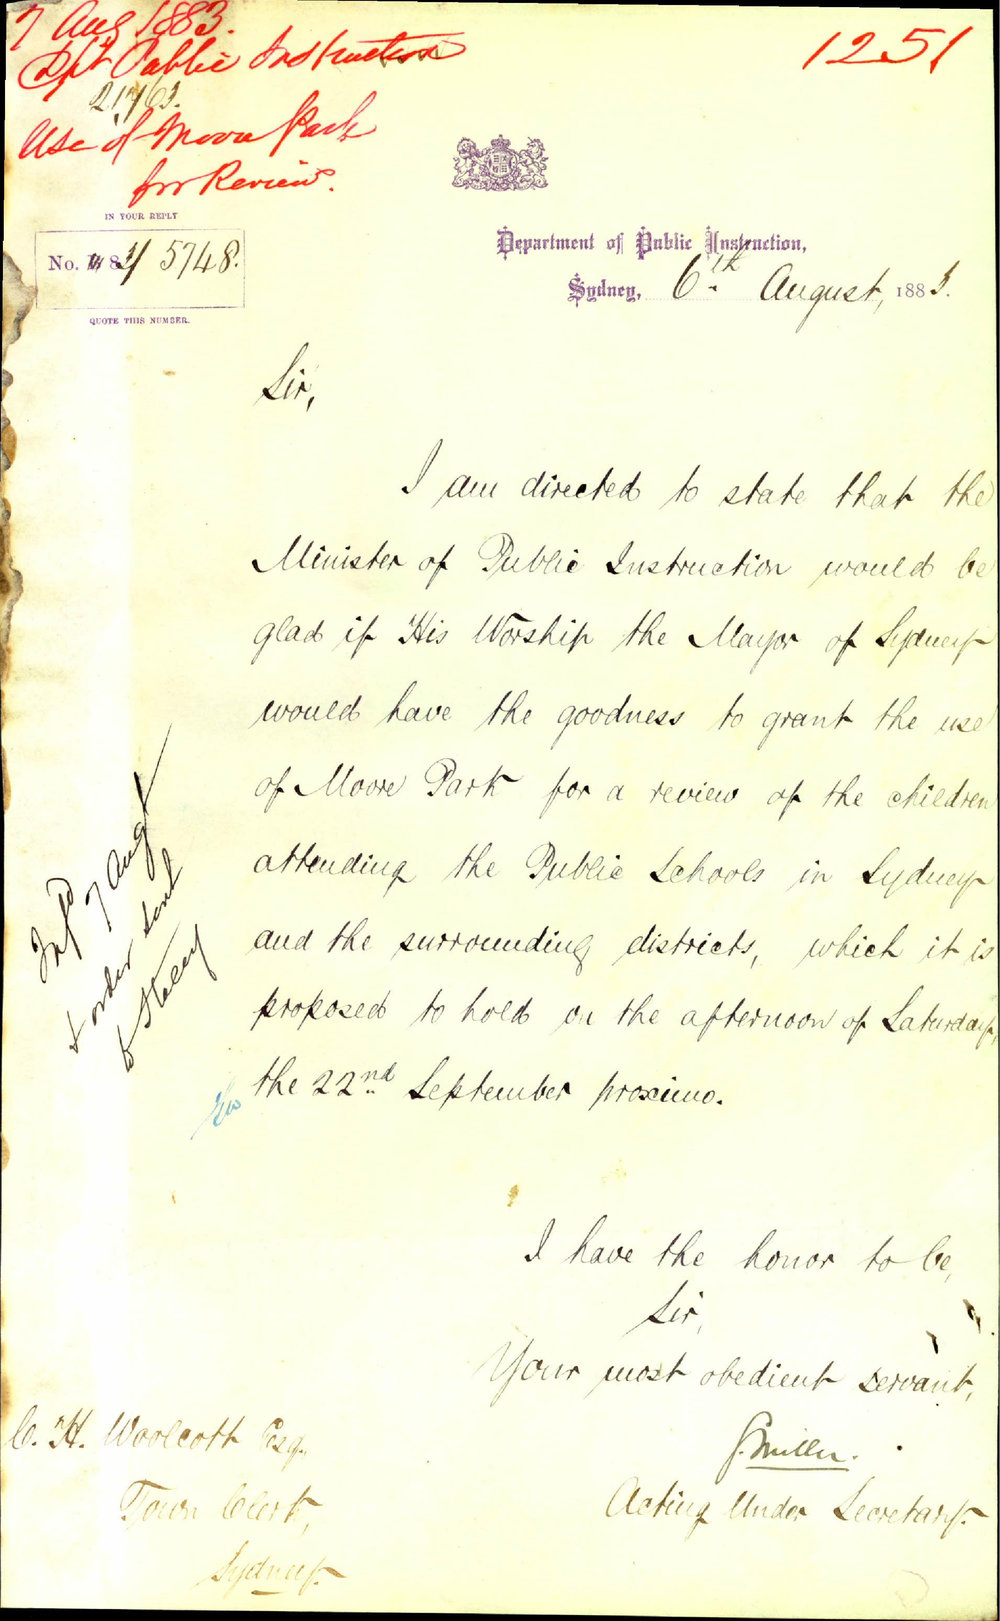 7 Aug 1883.
Dpt Public Instruction
1251
21763.
Use of Moore Park
for Review.
IN YOUR REPLY
No. 83/5748.
QUOTE THIS NUMBER.
Department of Public Instruction,
Sydney, 6th August, 1883.
Sir,
I am directed to state that the
Minister of Public Instruction would be
glad if His Worship the Mayor of Sydney
would have the goodness to grant the use
of Moore Park for a review of the children
attending the Public Schools in Sydney
and the surrounding districts, which it is
proposed to hold on the afternoon of Saturday,
the 22nd September proximo.
Infd 7 Augt
& order sent
to Stacey
I have the honor to be,
Sir,
Your most obedient servant,
J. Miller.
Acting Under Secretary.
C. H. Woolcott Esq.,
Town Clerk,
Sydney.